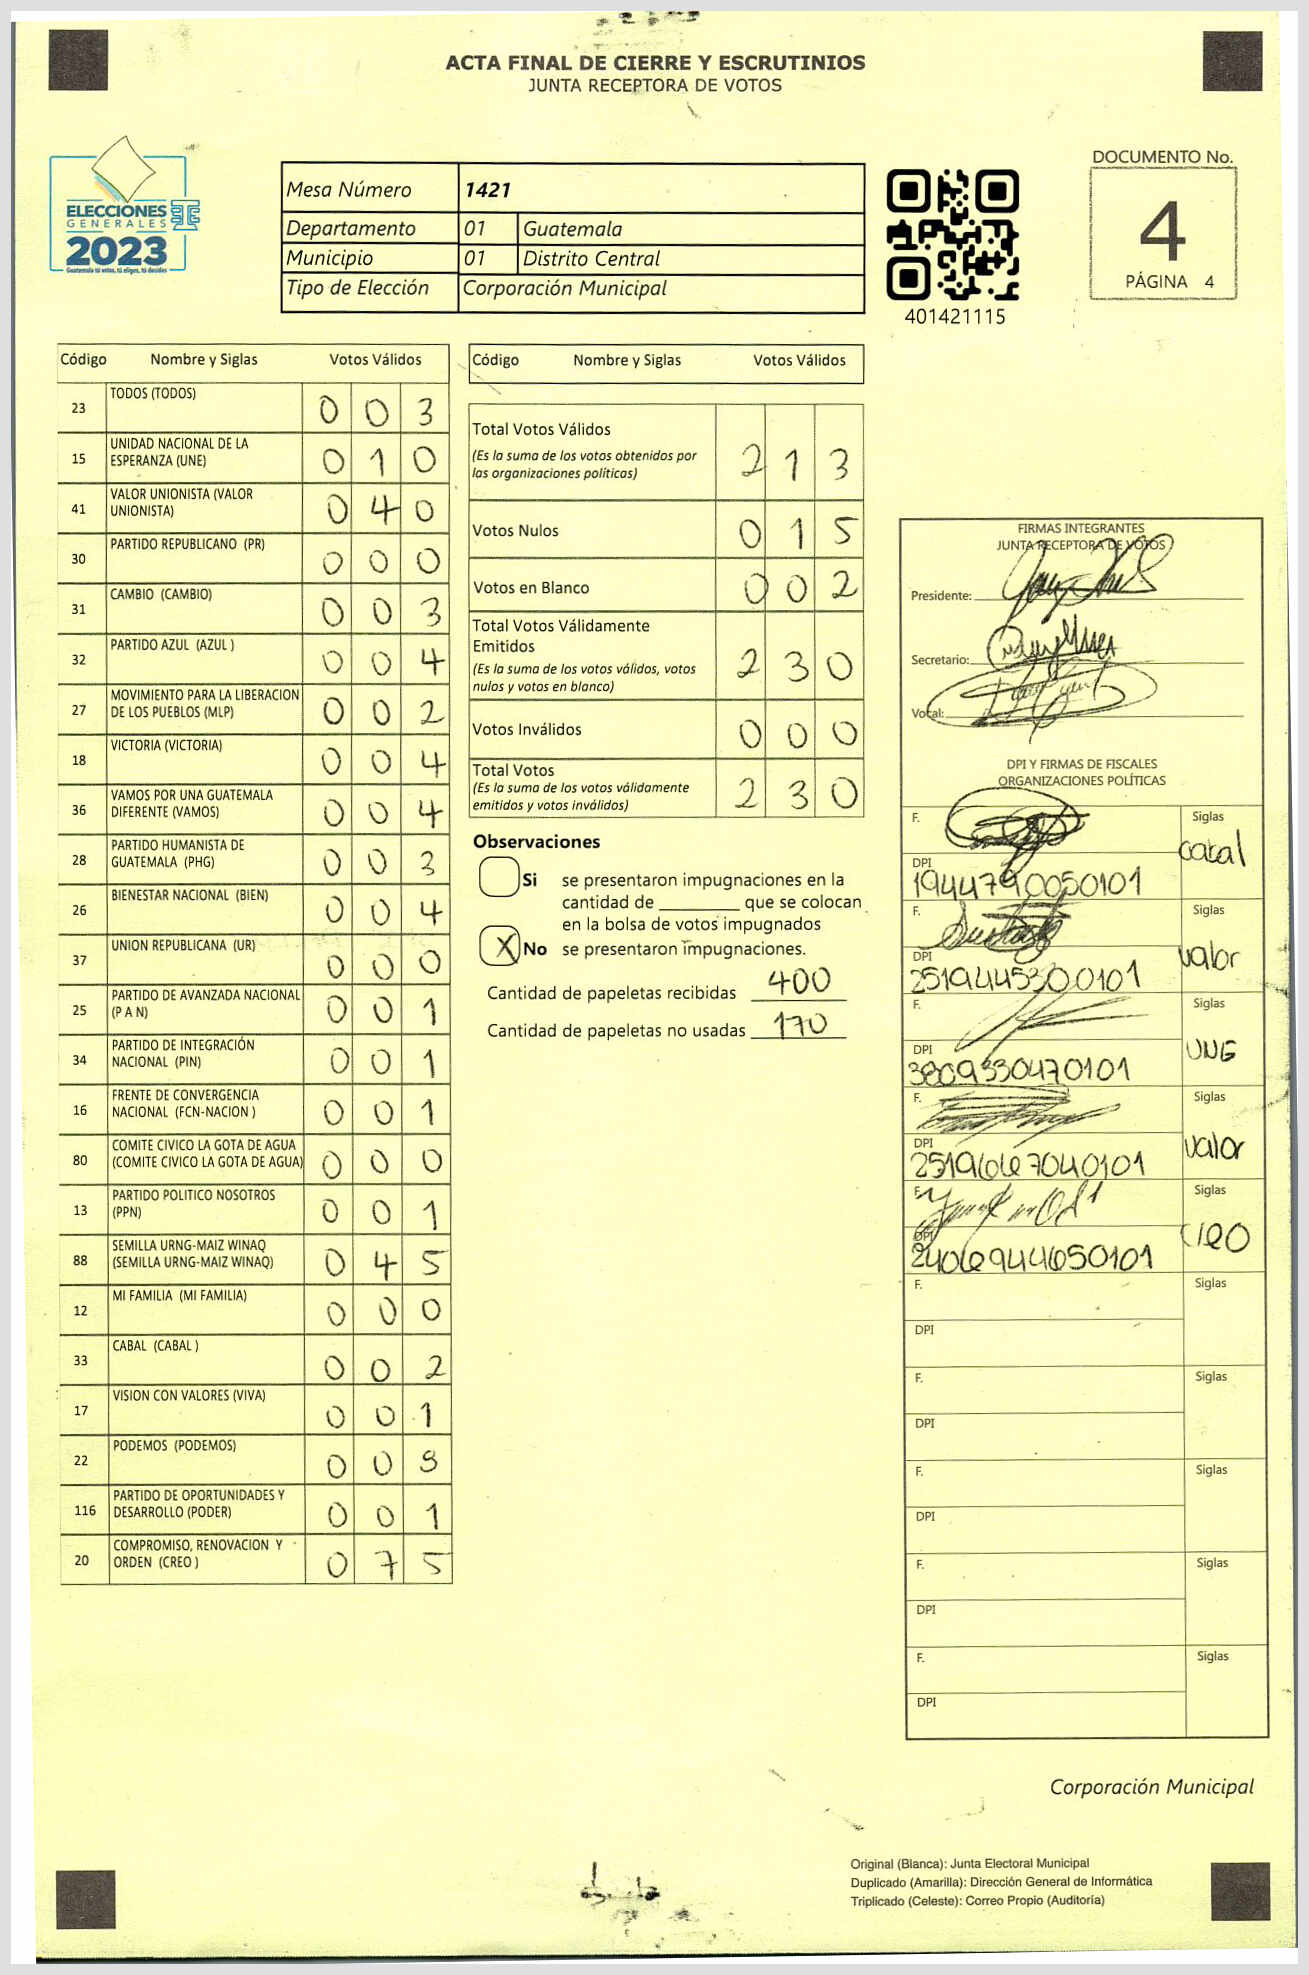 ACTA FINAL DE CIERRE Y ESCRUTINIOS
JUNTA RECEPTORA DE VOTOS
ELECCIONES
GENERALES
2023
Guatemala tú votas, tú eliges, tú decides
Mesa Número 1421
Departamento 01 Guatemala
Municipio 01 Distrito Central
Tipo de Elección Corporación Municipal
401421115
DOCUMENTO No.
4
PÁGINA 4
Código Nombre y Siglas Votos Válidos
23 TODOS (TODOS) 0 0 3
15 UNIDAD NACIONAL DE LA ESPERANZA (UNE) 0 1 0
41 VALOR UNIONISTA (VALOR UNIONISTA) 0 4 0
30 PARTIDO REPUBLICANO (PR) 0 0 0
31 CAMBIO (CAMBIO) 0 0 3
32 PARTIDO AZUL (AZUL ) 0 0 4
27 MOVIMIENTO PARA LA LIBERACION DE LOS PUEBLOS (MLP) 0 0 2
18 VICTORIA (VICTORIA) 0 0 4
36 VAMOS POR UNA GUATEMALA DIFERENTE (VAMOS) 0 0 4
28 PARTIDO HUMANISTA DE GUATEMALA (PHG) 0 0 3
26 BIENESTAR NACIONAL (BIEN) 0 0 4
37 UNION REPUBLICANA (UR) 0 0 0
25 PARTIDO DE AVANZADA NACIONAL (P A N) 0 0 1
34 PARTIDO DE INTEGRACIÓN NACIONAL (PIN) 0 0 1
16 FRENTE DE CONVERGENCIA NACIONAL (FCN-NACION ) 0 0 1
80 COMITE CIVICO LA GOTA DE AGUA (COMITE CIVICO LA GOTA DE AGUA) 0 0 0
13 PARTIDO POLITICO NOSOTROS (PPN) 0 0 1
88 SEMILLA URNG-MAIZ WINAQ (SEMILLA URNG-MAIZ WINAQ) 0 4 5
12 MI FAMILIA (MI FAMILIA) 0 0 0
33 CABAL (CABAL ) 0 0 2
17 VISION CON VALORES (VIVA) 0 0 1
22 PODEMOS (PODEMOS) 0 0
116 PARTIDO DE OPORTUNIDADES Y DESARROLLO (PODER) 0 0 1
20 COMPROMISO, RENOVACION Y ORDEN (CREO ) 0 7 5
Código Nombre y Siglas Votos Válidos
Total Votos Válidos 2 1 3
(Es la suma de los votos obtenidos por
las organizaciones políticas)
Votos Nulos 0 1 5
Votos en Blanco 0 0 2
Total Votos Válidamente
Emitidos 2 3 0
(Es la suma de los votos válidos, votos
nulos y votos en blanco)
Votos Inválidos 0 0 0
Total Votos 2 3 0
(Es la suma de los votos válidamente
emitidos y votos inválidos)
Observaciones
Si se presentaron impugnaciones en la
cantidad de ________ que se colocan
en la bolsa de votos impugnados
X No se presentaron impugnaciones.
Cantidad de papeletas recibidas 400
Cantidad de papeletas no usadas 170
FIRMAS INTEGRANTES
JUNTA RECEPTORA DE VOTOS
Presidente:
Secretario:
Vocal:
DPI Y FIRMAS DE FISCALES
ORGANIZACIONES POLÍTICAS
F. Siglas
cabal
DPI
1944790050101
F. Siglas
valor
DPI
2519445300101
F. Siglas
UNE
DPI
3809330470101
F. Siglas
valor
DPI
2519667040101
F. Siglas
creo
DPI
2406944650101
F. Siglas
DPI
F. Siglas
DPI
F. Siglas
DPI
F. Siglas
DPI
F. Siglas
DPI
Corporación Municipal
Original (Blanca): Junta Electoral Municipal
Duplicado (Amarilla): Dirección General de Informática
Triplicado (Celeste): Correo Propio (Auditoría)